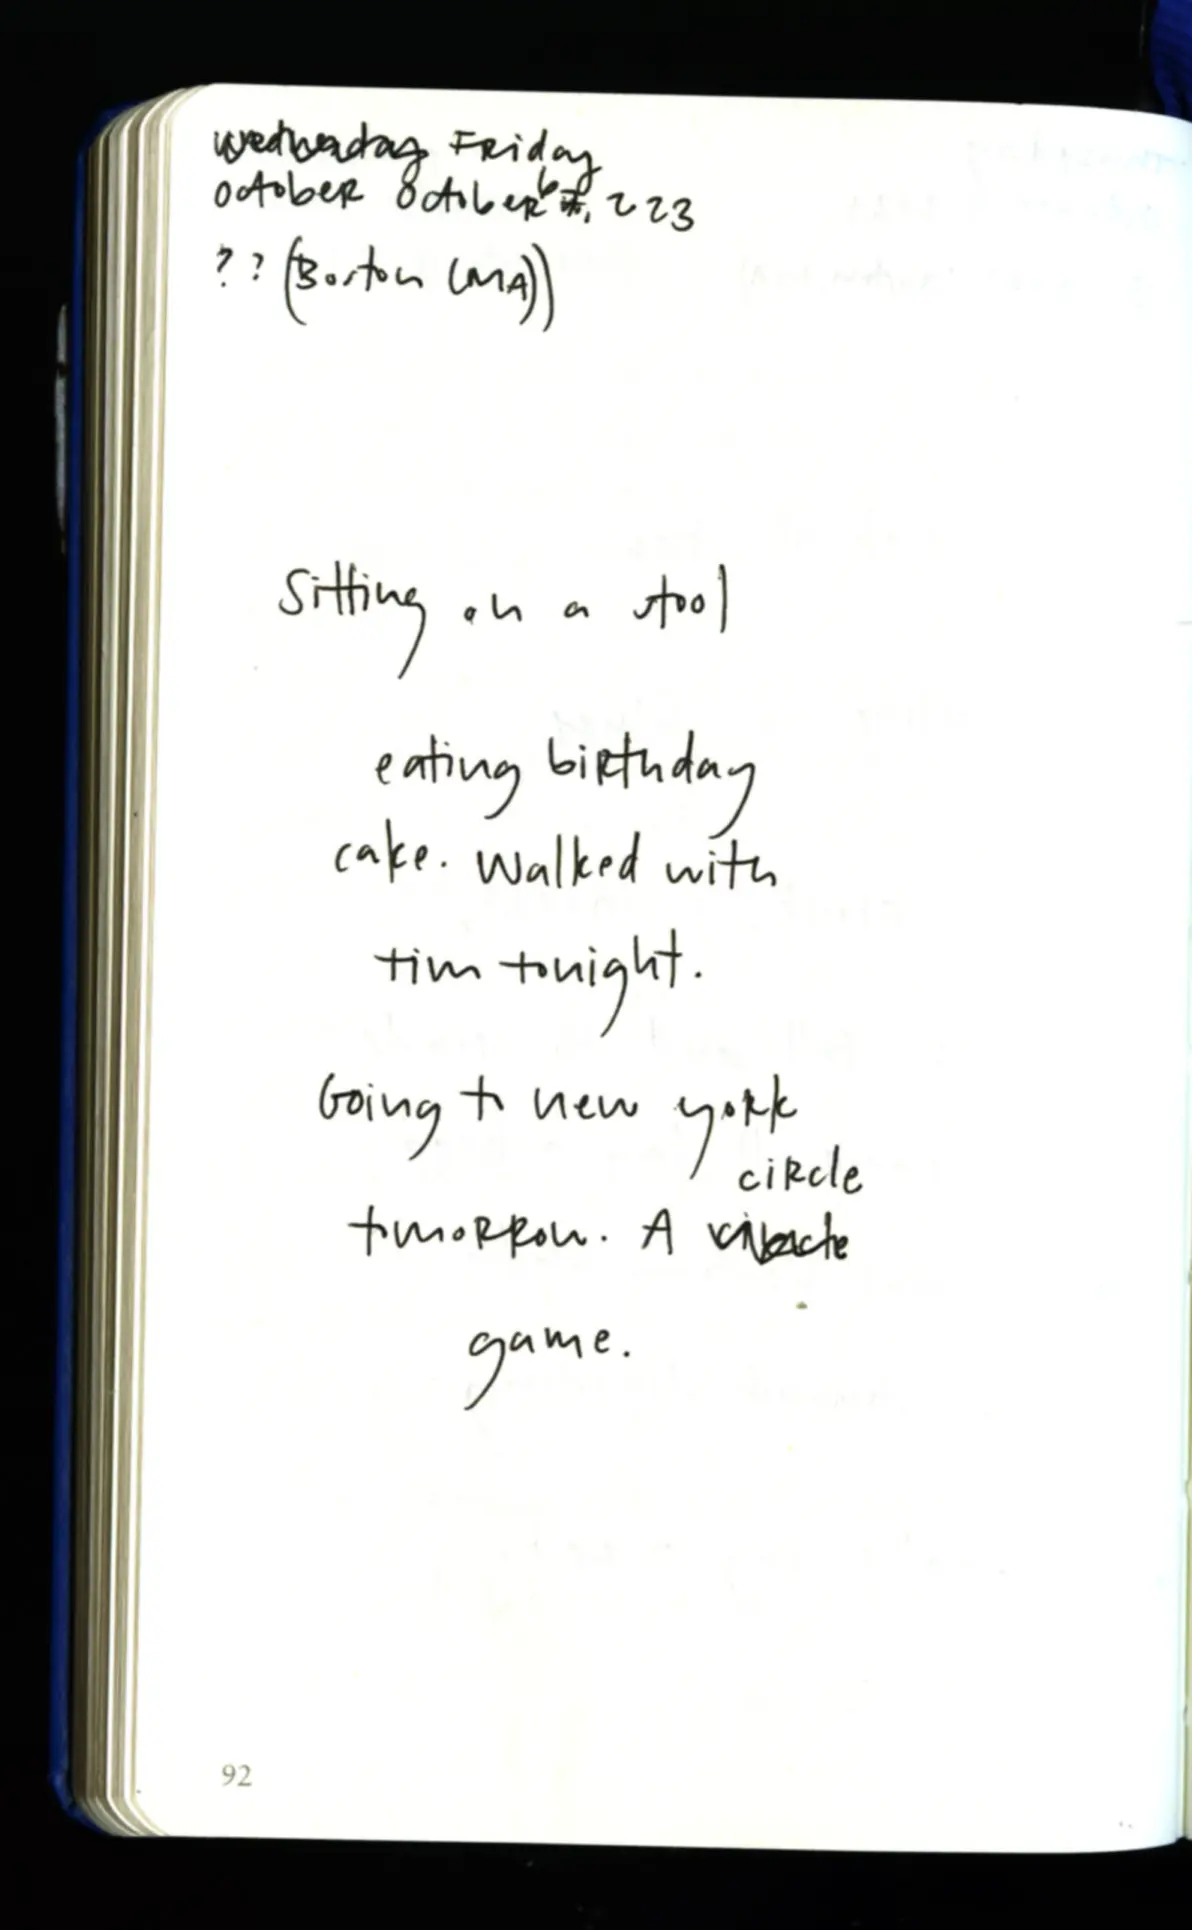 Wednesday Friday
October October 6, 2023
?? (Boston (MA))
Sitting on a stool
eating birthday
cake. Walked with
tim tonight.
Going to new york
circle
tomorrow. A
game.
92